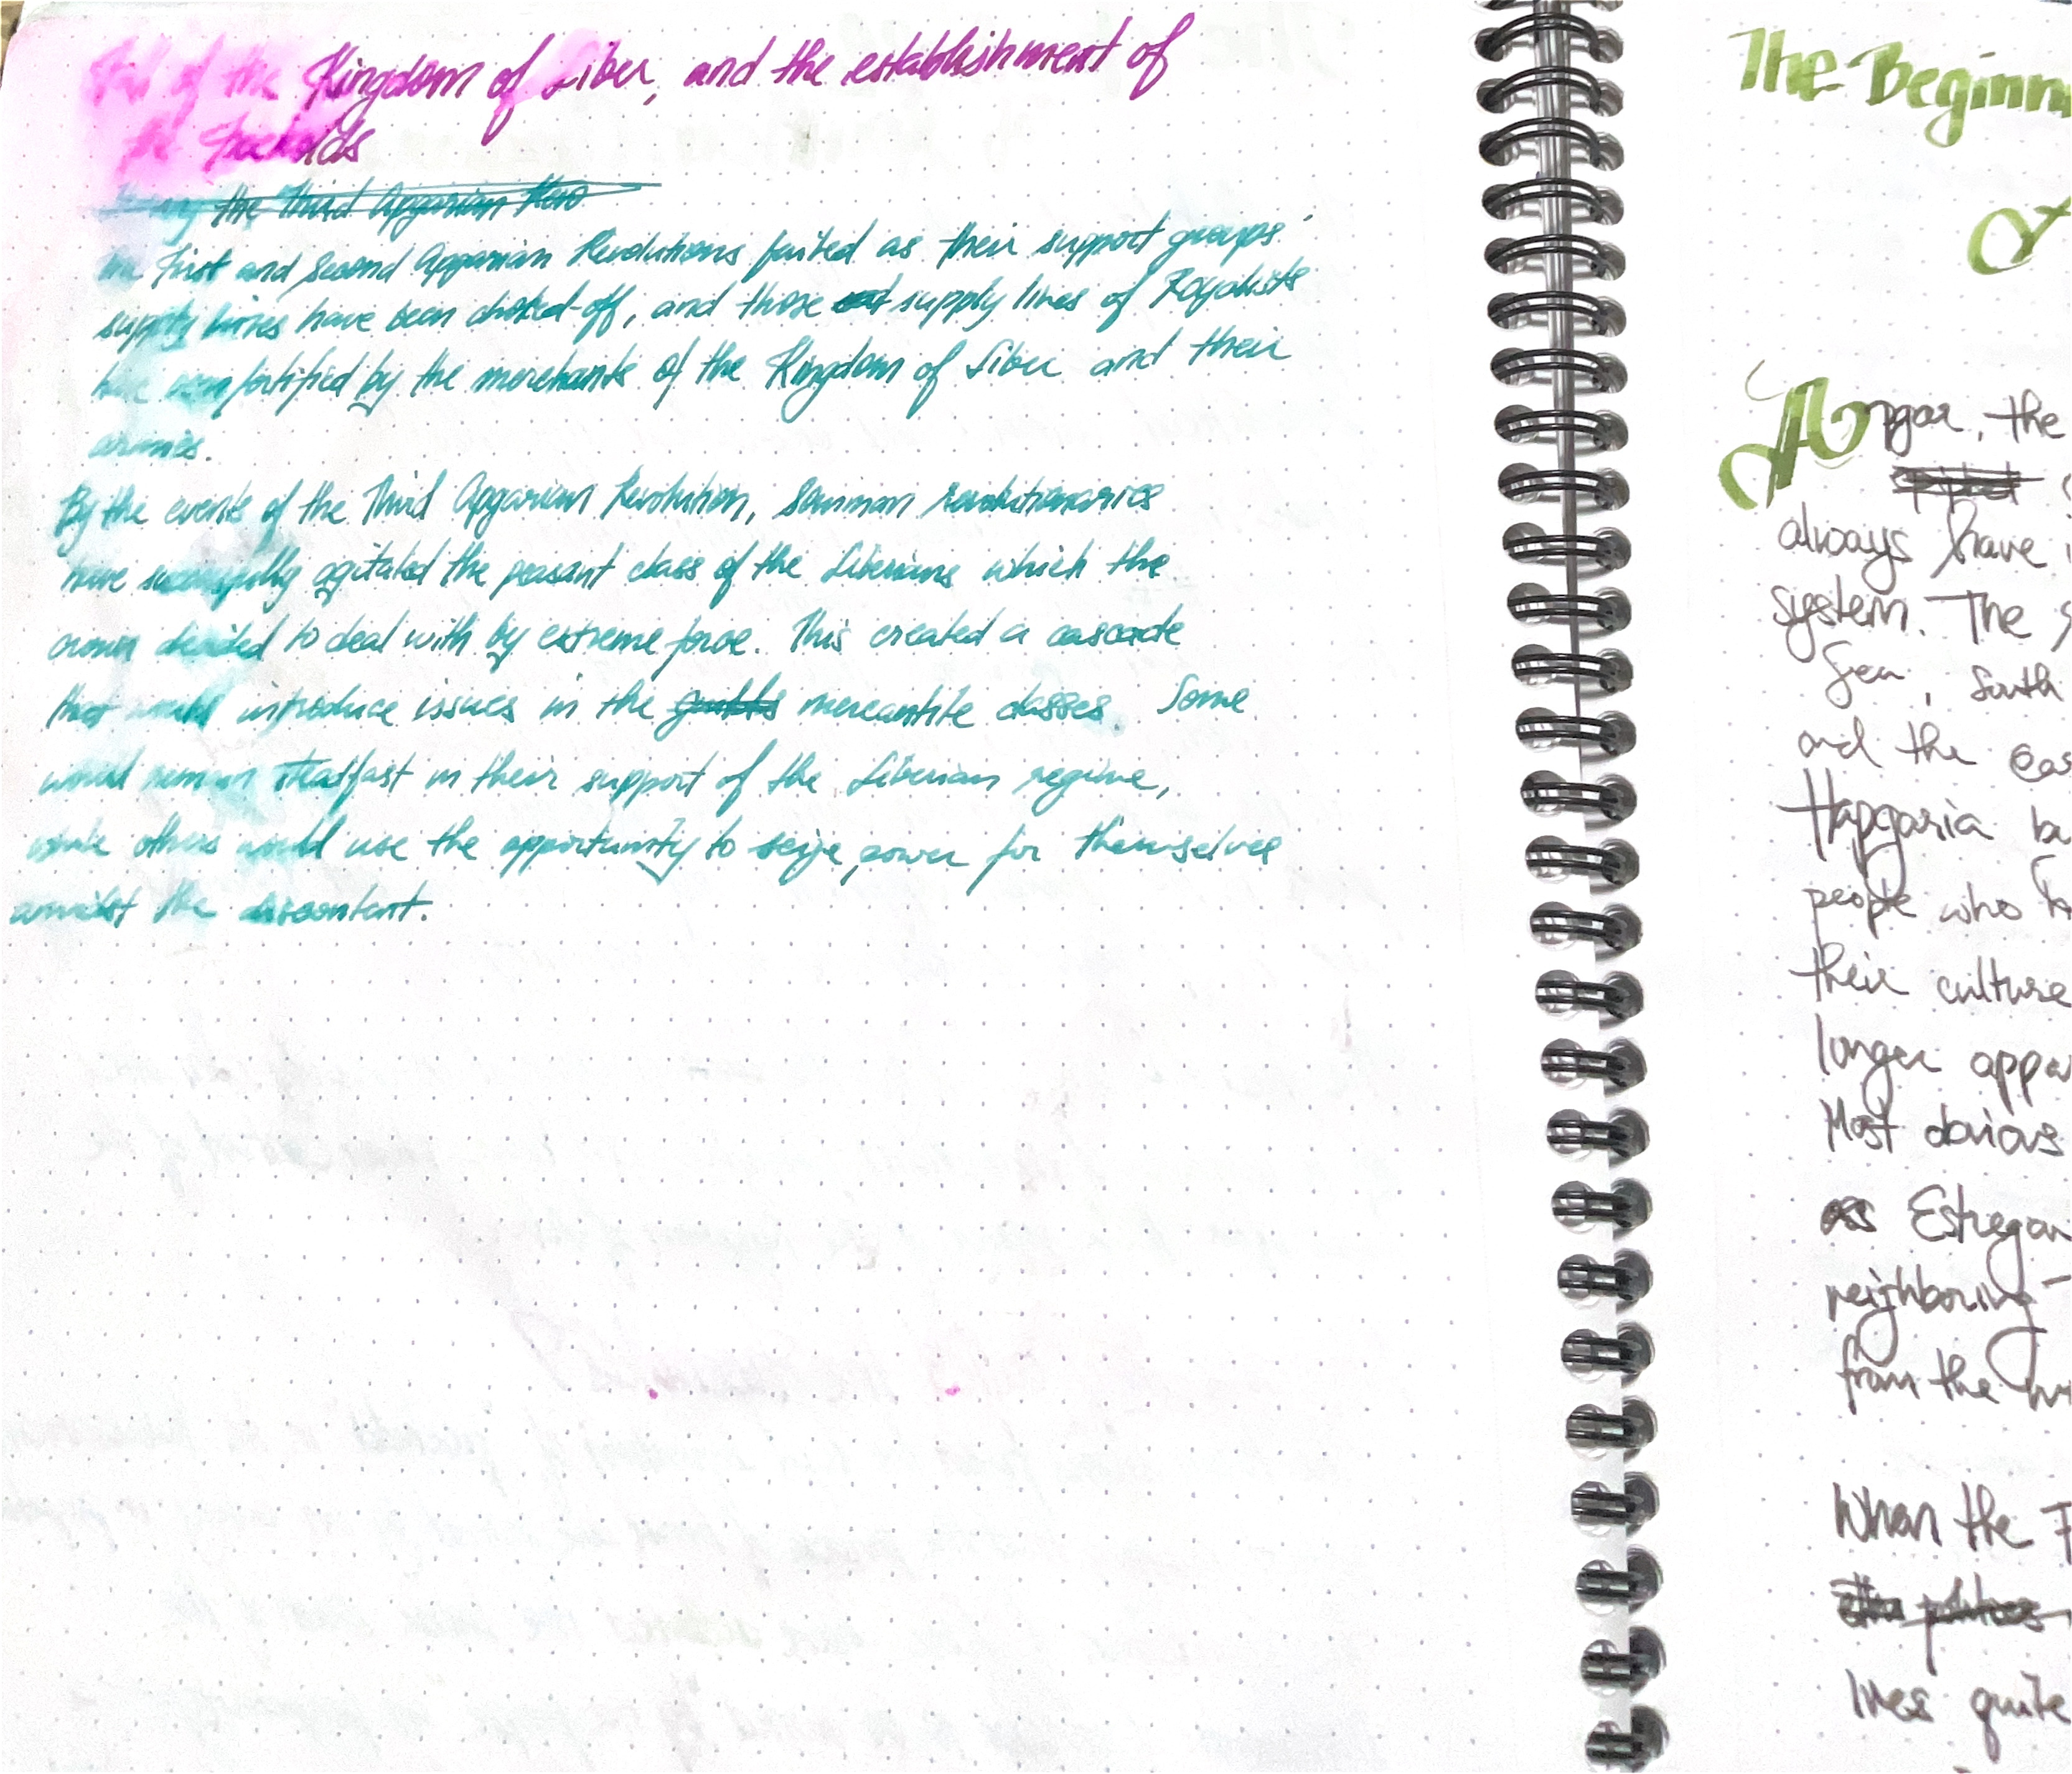 Fall of the Kingdom of Liber, and the establishment of
the Freeholds
the Third Apgarian Revo
The First and Second Apgarian Revolutions failed as their support groups'
supply lines have been choked-off, and those supply lines of Royalists
have been fortified by the merchants of the Kingdom of Liber and their
armies.
By the events of the Third Apgarian Revolution, revolutionaries
have successfully agitated the peasant class of the Liberians which the
crown decided to deal with by extreme force. This created a cascade
that would introduce issues in the guilds mercantile classes. Some
would remain steadfast in their support of the Liberian regime,
while others would use the opportunity to seize power for themselves
amidst the discontent.
The Beginn
Apgar, the
always have
system. The
Sea, South
and the eas
Hapgaria bu
people who
their culture
longer appa
Most obvious
as Estregan
neighbouring
from the
When the
the politics
lives quite